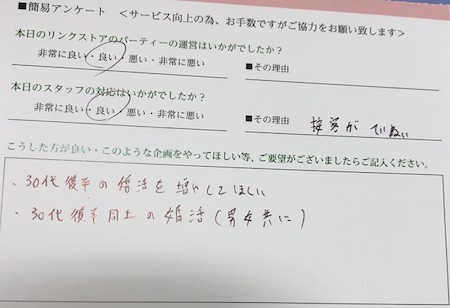 ■簡易アンケート ＜サービス向上の為、お手数ですがご協力をお願い致します＞
本日のリンクストアのパーティーの運営はいかがでしたか？
非常に良い・良い・悪い・非常に悪い ■その理由
本日のスタッフの対応はいかがでしたか？
非常に良い・良い・悪い・非常に悪い ■その理由 接客が ていねい
こうした方が良い・このような企画をやってほしい等、ご要望がございましたらご記入ください。
・30代後半の婚活を増やしてほしい
・30代後半同士の婚活(男女共に)